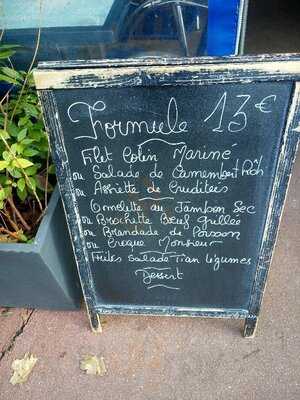 Formule 13€
Filet Colin Mariné
ou Salade de Camembert Rôti
ou Assiette de Crudités
Omelette au Jambon Sec
ou Brochette Bœuf grillée
ou Brandade de Poisson
ou Croque Monsieur
Frites Salade Tian légumes
Dessert